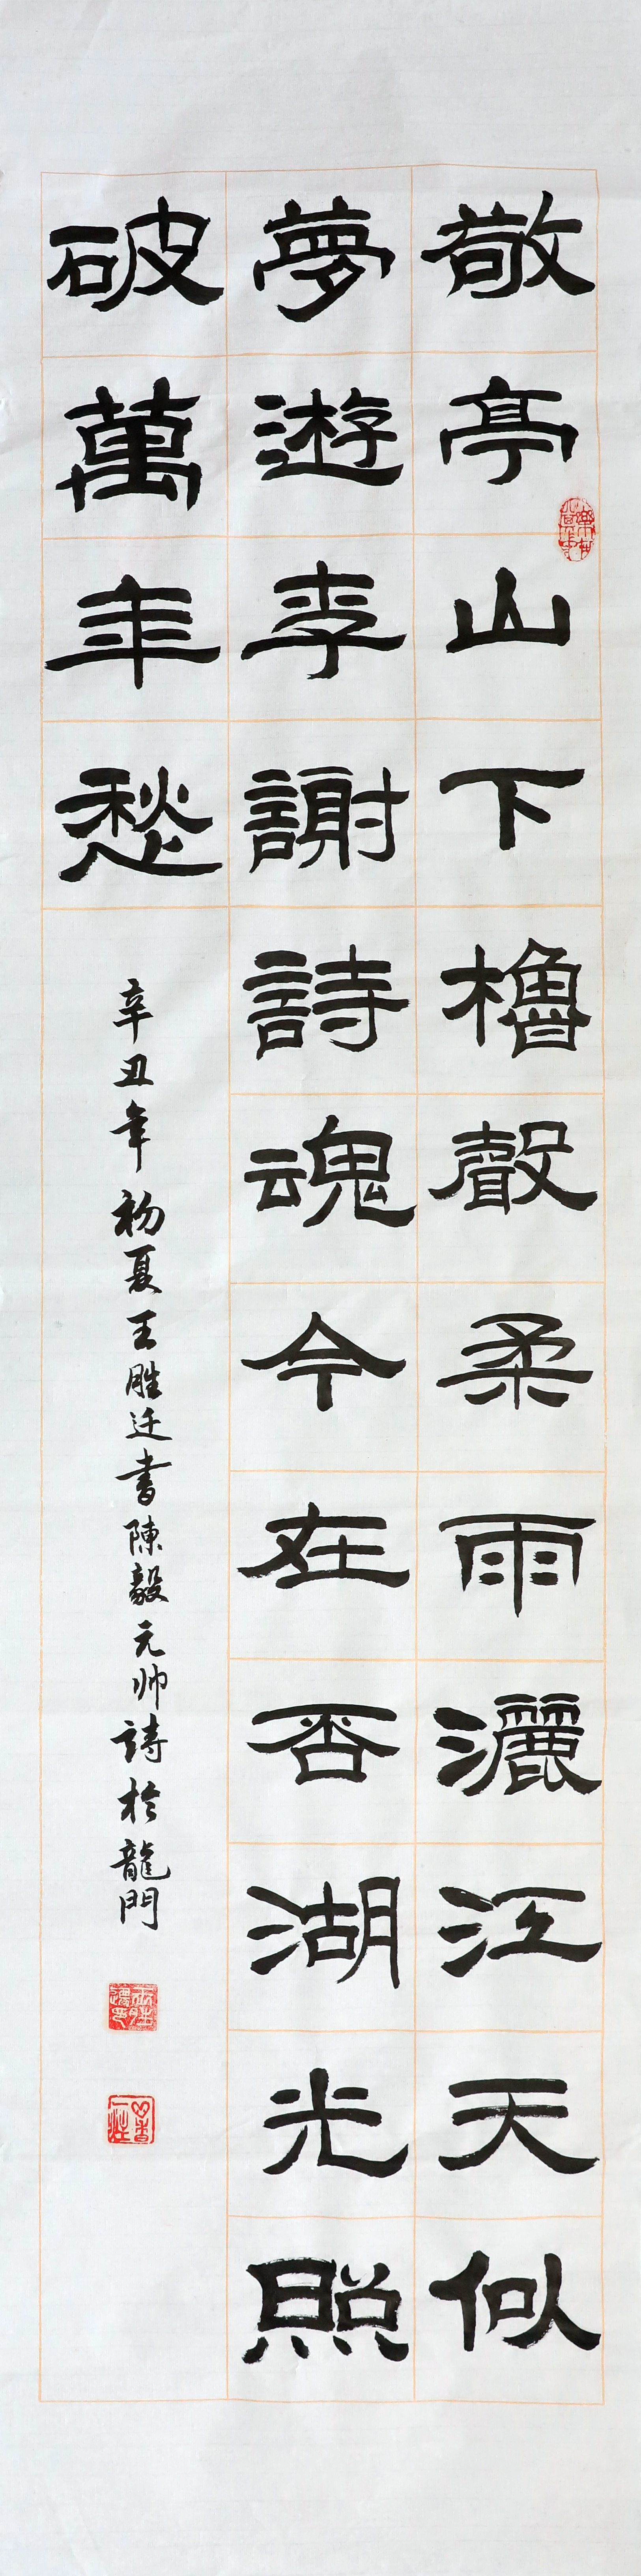 敬亭山下櫓聲柔雨灑江天似
夢遊李謝詩魂今在否湖光照
破萬年愁
辛丑年初夏王勝迁書陳毅元帅詩於龍門